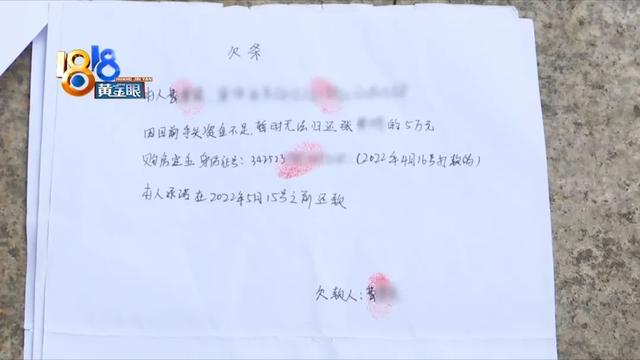 1818
黄金眼
欠条
本人黄
因目前手头资金不足,暂时无法归还张 的5万元
购房定金 身份证号:342523 (2022年4月16号打款的)
本人承诺在2022年5月15号之前还款
欠款人:黄